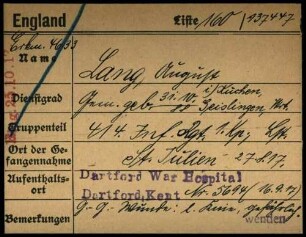 England
Liste 160 / 237447
Erkm. 4633
Name
Lang, August
i/ Kuchen,
Dienstgrad
Gem. geb. 31.10. Geislingen, Wrt.
Gruppenteil
414. Inf. Rgt. 1. Kp.
Ort der Gefangennahme
St. Julien 27.8.17.
Aufenthaltsort
Dartford War Hospital
Dartford, Kent
Nr. 5694/16.9.17)
Bemerkungen
G.-G. Wunde: l. Knie,